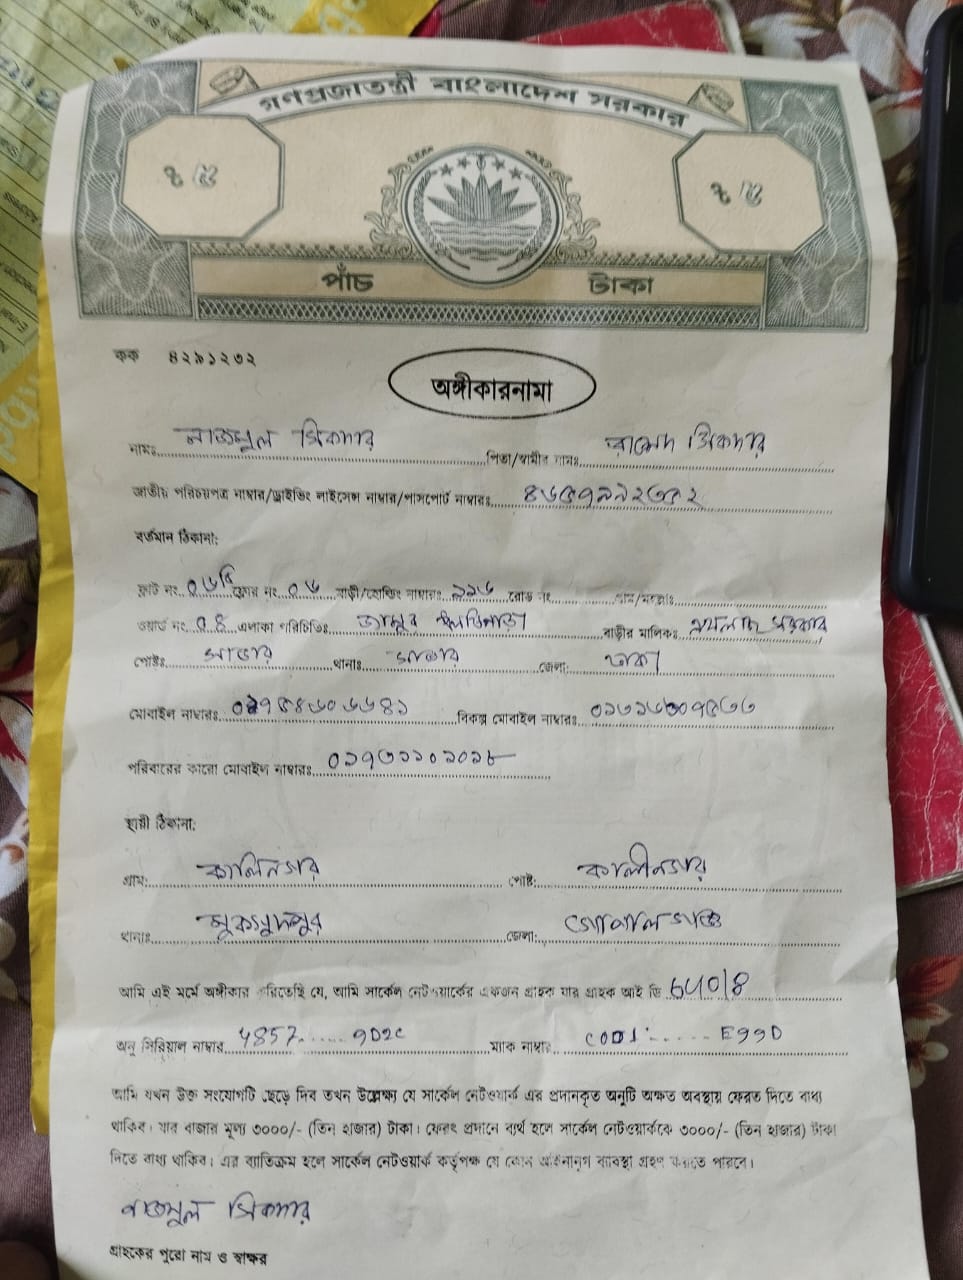 গণপ্রজাতন্ত্রী বাংলাদেশ সরকার
৳ ৫ ৳ ৫
পাঁচ টাকা
কক ৪২৯১২৩২
অঙ্গীকারনামা
নামঃ নাজমুল সিকদার পিতা/স্বামীর নামঃ রাসেদ সিকদার
জাতীয় পরিচয়পত্র নাম্বার/ড্রাইভিং লাইসেন্স নাম্বার/পাসপোর্ট নাম্বারঃ
বর্তমান ঠিকানা:
ফ্লাট নং ফ্লোর নং ০৬ বাড়ী/হোল্ডিং নাম্বারঃ ১১৬ রোড নং গ্রাম/মহল্লাঃ
ওয়ার্ড নং ০৪ এলাকা পরিচিতিঃ বাড়ীর মালিকঃ সরকার
পোষ্টঃ সাভার থানাঃ সাভার জেলা: ঢাকা
মোবাইল নাম্বারঃ বিকল্প মোবাইল নাম্বারঃ
পরিবারের কারো মোবাইল নাম্বারঃ ০১৭৩১১০১০১৮
স্থায়ী ঠিকানা:
গ্রাম: কালিনগর পোষ্ট: কালীনগর
থানাঃ মুকসুদপুর জেলা: গোপালগঞ্জ
আমি এই মর্মে অঙ্গীকার করিতেছি যে, আমি সার্কেল নেটওয়ার্কের একজন গ্রাহক যার গ্রাহক আই ডি
অনু সিরিয়াল নাম্বার 4857......9D2C ম্যাক নাম্বার C0D1:......E99D
আমি যখন উক্ত সংযোগটি ছেড়ে দিব তখন উল্লেক্ষ্য যে সার্কেল নেটওয়ার্ক এর প্রদানকৃত অনুটি অক্ষত অবস্থায় ফেরত দিতে বাধ্য
থাকিব। যার বাজার মূল্য ৩০০০/- (তিন হাজার) টাকা। ফেরৎ প্রদানে ব্যর্থ হলে সার্কেল নেটওয়ার্ককে ৩০০০/- (তিন হাজার) টাকা
দিতে বাধ্য থাকিব। এর ব্যতিক্রম হলে সার্কেল নেটওয়ার্ক কর্তৃপক্ষ যে কোন আইনানুগ ব্যবস্থা গ্রহণ করতে পারবে।
নাজমুল সিকদার
গ্রাহকের পুরো নাম ও স্বাক্ষর